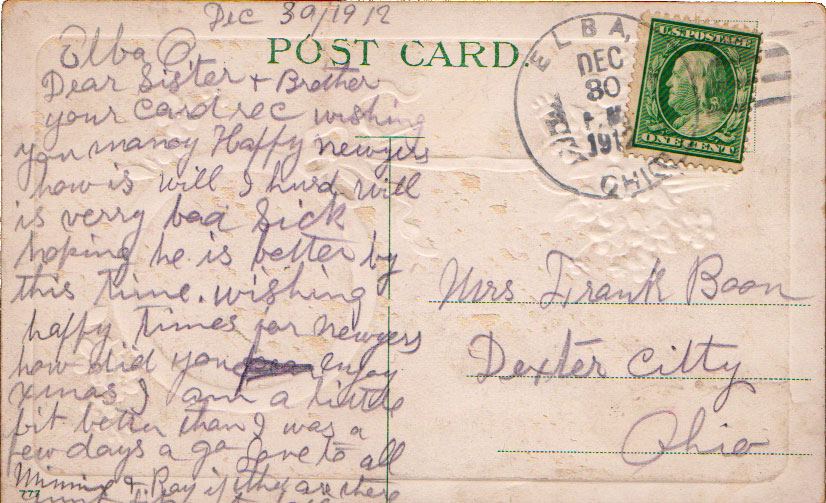 Dec 30/1912
Elba O.
POST CARD
Dear Sister + Brother
your card rec wishing
you manay Happy newyers
how is will I hurd will
is verry bad Sick
hoping he is better by
this Time. wishing
happy Times for newyers
how did you Enjoy
xmas I am a little
bit better than I was a
few days a go Love to all
Minnie & Ray if they are there
ELBA,
DEC
30
191
OHIO
U.S. POSTAGE
ONE CENT
Mrs Frank Boon
Dexter citty
Ohio